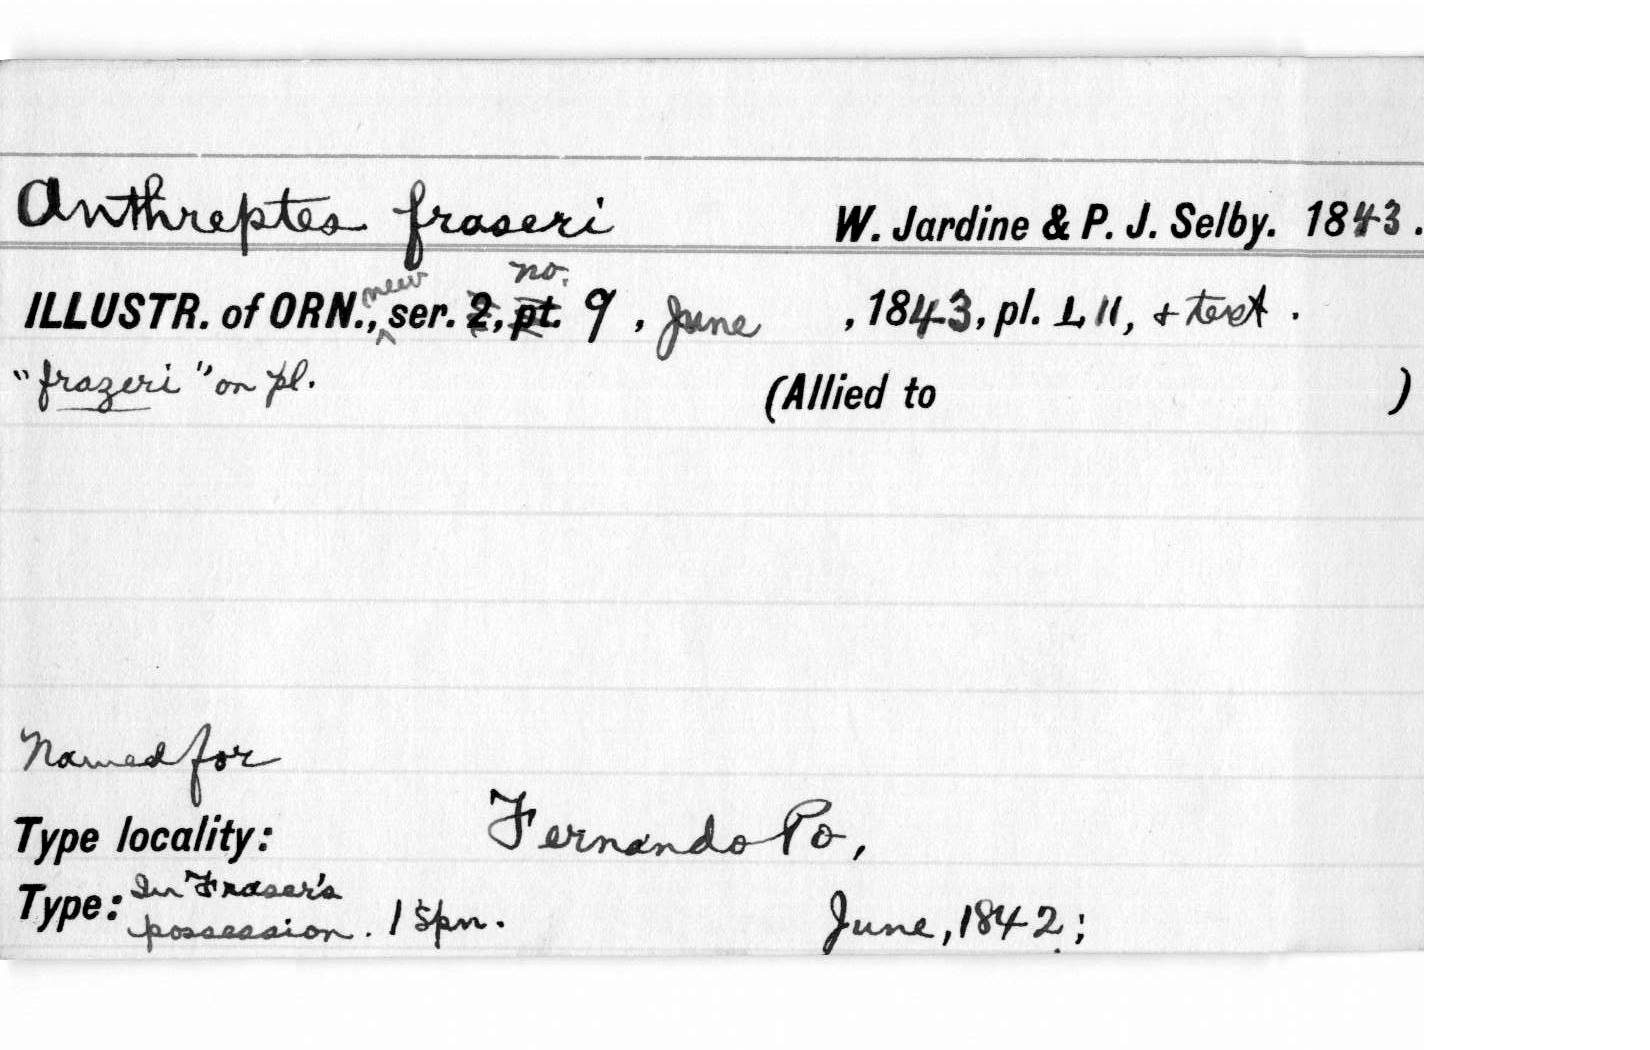 Anthreptes fraseri W. Jardine & P. J. Selby. 1843.
ILLUSTR. of ORN., new ser. 2, pt. no. 9, June, 1843, pl. LII, & text.
"frazeri" on pl. (Allied to )
Named for
Type locality: Fernando Po,
Type: In Fraser's
possession. 1 spn. June, 1842;